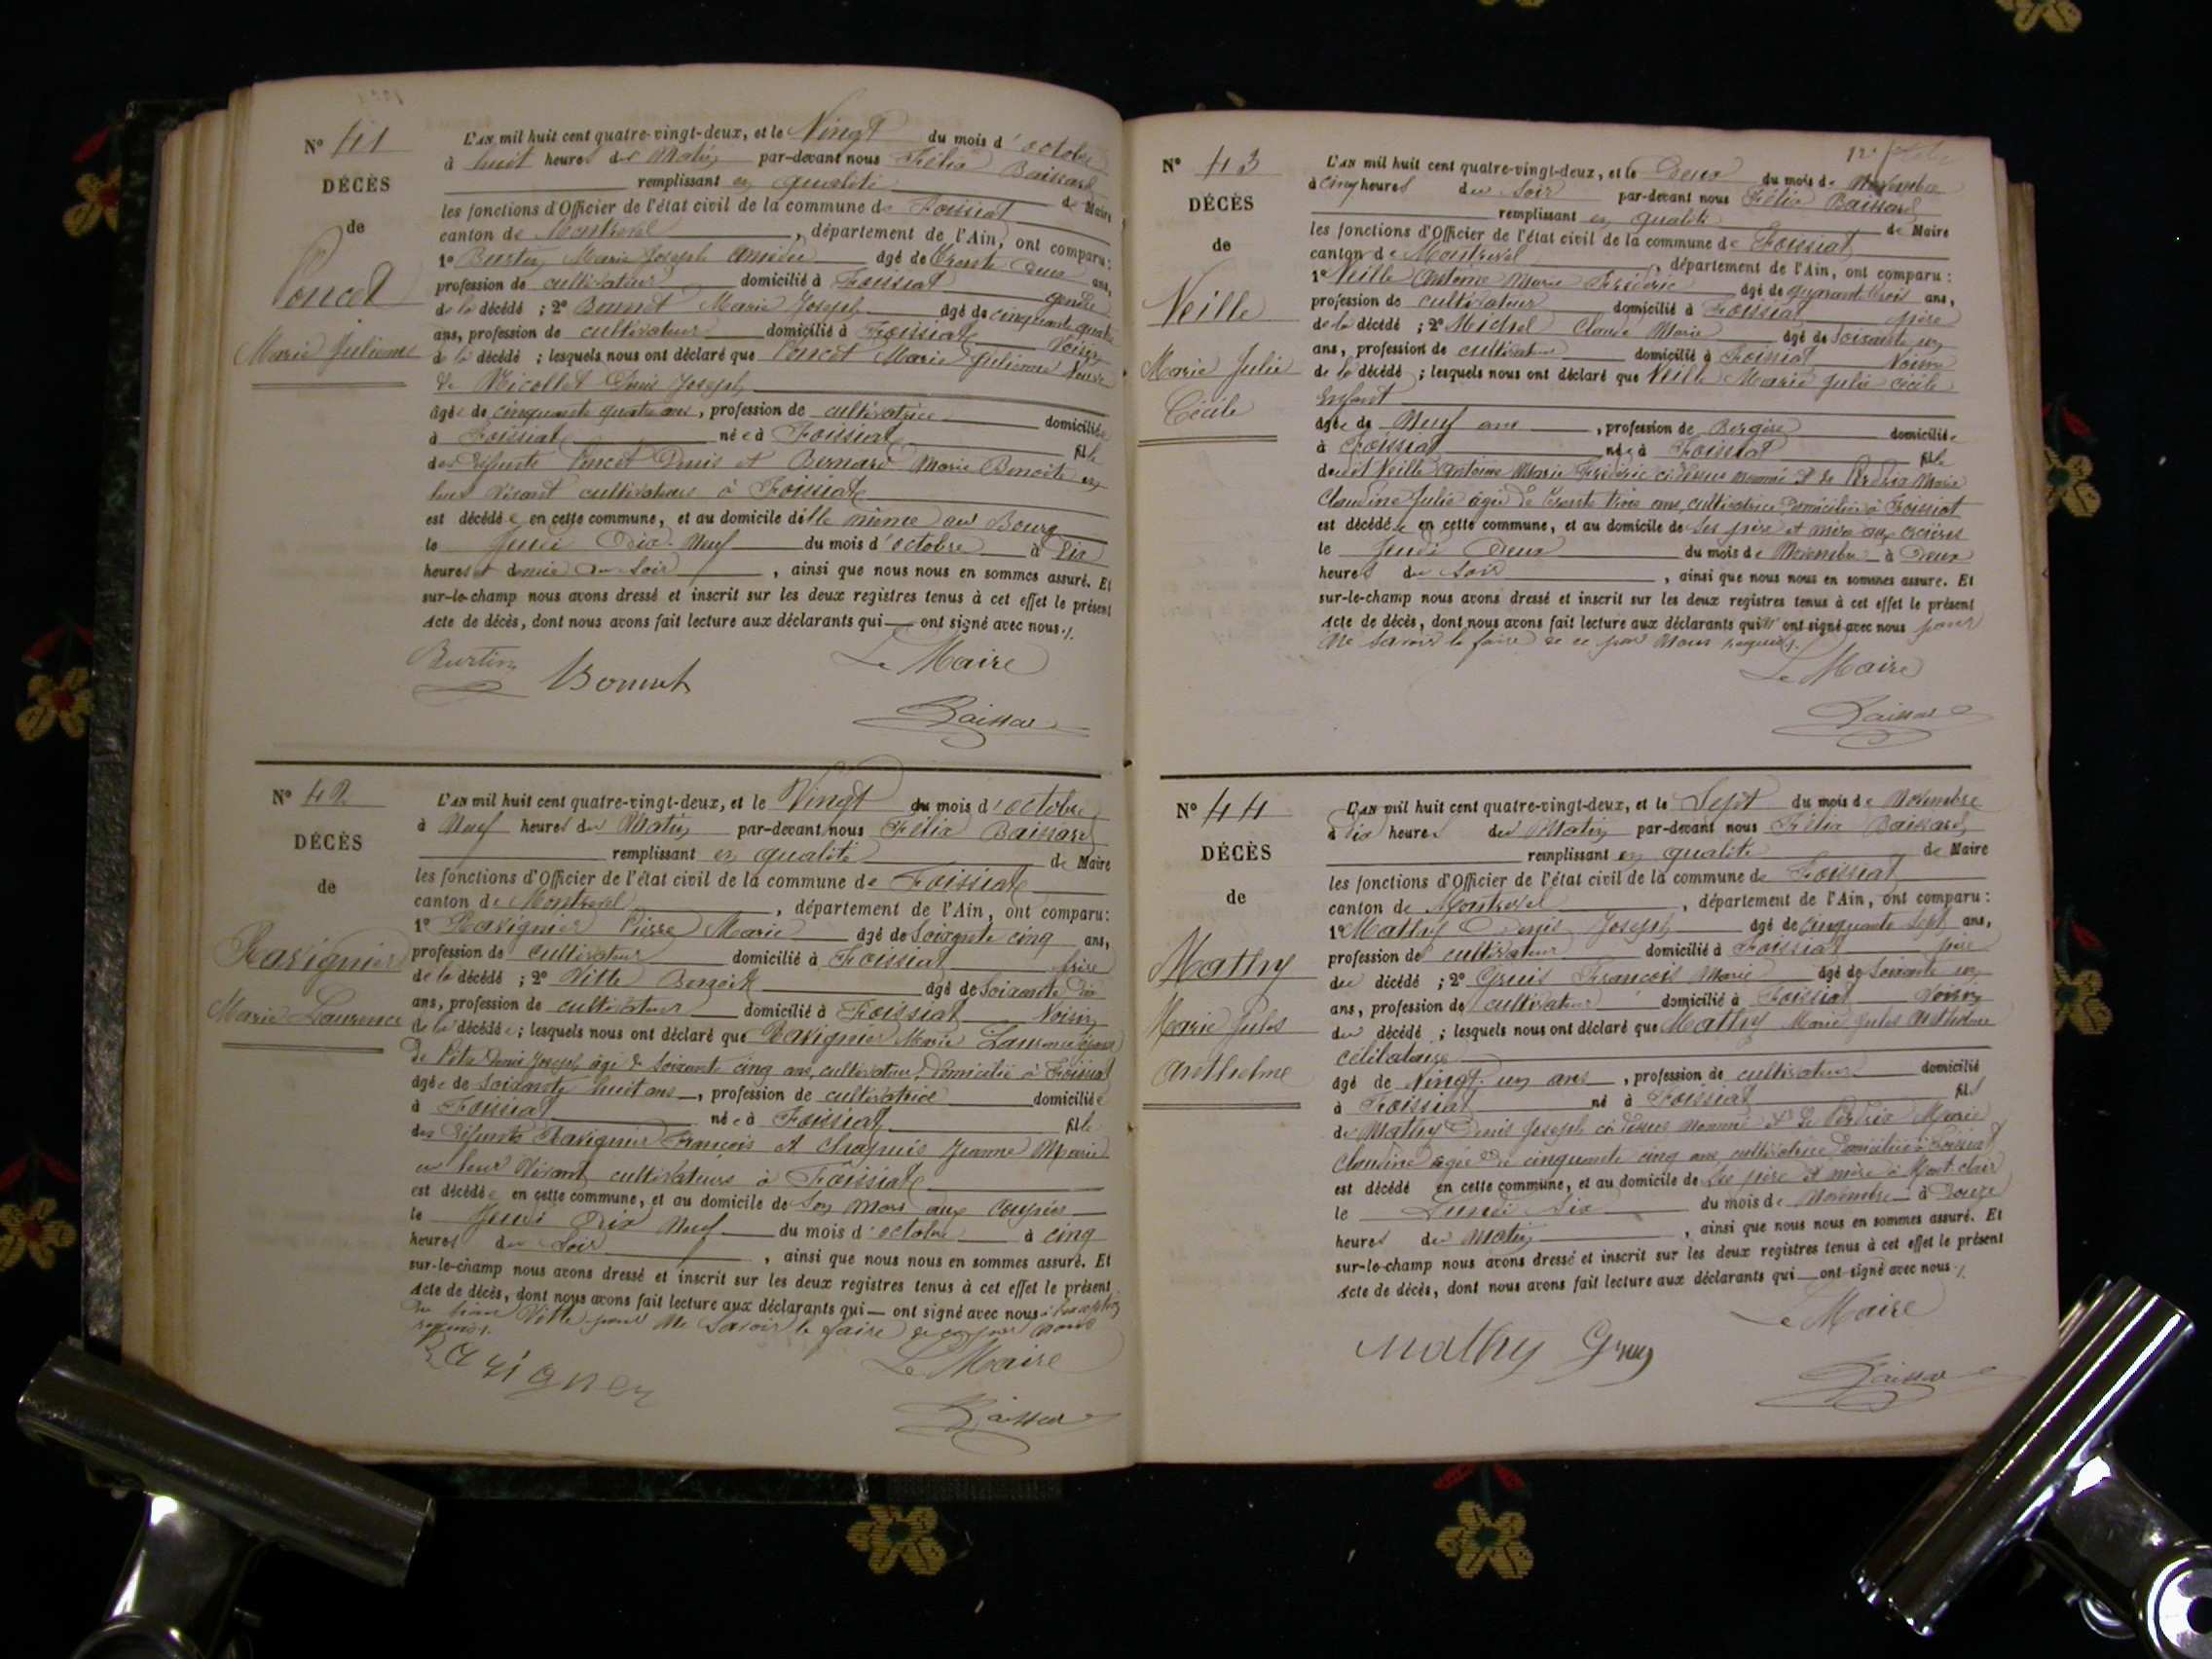 N° 41
DÉCÈS
de
Poncet
Marie Julienne
L'AN mil huit cent quatre-vingt-deux, et le Vingt du mois d'octobre
à huit heures du Matin par-devant nous Félix Baissard
remplissant en qualité de Maire
les fonctions d'Officier de l'état civil de la commune de Foissiat
canton de Montrevel, département de l'Ain, ont comparu:
1° Burtin Marie Joseph Amédée âgé de Trente Deux ans,
profession de cultivateur domicilié à Foissiat gendre
de la décédé ; 2° Bonnet Marie Joseph âgé de cinquante quatre
ans, profession de cultivateur domicilié à Foissiat Voisin
de la décédé ; lesquels nous ont déclaré que Poncet Marie Julienne Veuve
de Nicollet Denis Joseph
âgée de cinquante quatre ans, profession de cultivatrice domiciliée
à Foissiat née à Foissiat fille
des défunts Poncet Denis et Bernard Marie Benoite en
leur vivant cultivateurs à Foissiat
est décédée en cette commune, et au domicile d'elle même au Bourg
le Jeudi Dix-Neuf du mois d'octobre à Six
heures et demie du Soir, ainsi que nous nous en sommes assuré. Et
sur-le-champ nous avons dressé et inscrit sur les deux registres tenus à cet effet le présent
Acte de décès, dont nous avons fait lecture aux déclarants qui — ont signé avec nous./.
Burtin Bonnet Le Maire
Baissard
N° 42
DÉCÈS
de
Ravignier
Marie Laurence
L'AN mil huit cent quatre-vingt-deux, et le Vingt du mois d'octobre
à Neuf heures du Matin par-devant nous Félix Baissard
remplissant en qualité de Maire
les fonctions d'Officier de l'état civil de la commune de Foissiat
canton de Montrevel, département de l'Ain, ont comparu:
1° Ravignier Pierre Marie âgé de Soixante cinq ans,
profession de cultivateur domicilié à Foissiat frère
de la décédé ; 2° Vitte Benoit âgé de Soixante Dix
ans, profession de cultivateur domicilié à Foissiat Voisin
de la décédée ; lesquels nous ont déclaré que Ravignier Marie Laurence épouse
de Denis Joseph âgé de Soixante cinq ans, cultivateur, Domicilié à Foissiat
âgée de Soixante huit ans, profession de cultivatrice domiciliée
à Foissiat née à Foissiat fille
des défunts Ravignier François et Chapuis Jeanne Marie
en leur Vivant cultivateurs à Foissiat
est décédée en cette commune, et au domicile de Son Mari aux
le Jeudi Dix Neuf du mois d'octobre à cinq
heures du Soir, ainsi que nous nous en sommes assuré. Et
sur-le-champ nous avons dressé et inscrit sur les deux registres tenus à cet effet le présent
Acte de décès, dont nous avons fait lecture aux déclarants qui — ont signé avec nous à l'exception
du sieur Vitte pour Ne Savoir le faire de ce par Nous
requis./.
Ravignier Le Maire
Baissard
N° 43
DÉCÈS
de
Veille
Marie Julie
Cécile
L'AN mil huit cent quatre-vingt-deux, et le Deux du mois de Novembre
à cinq heures du Soir par-devant nous Félix Baissard
remplissant en qualité de Maire
les fonctions d'Officier de l'état civil de la commune de Foissiat
canton de Montrevel, département de l'Ain, ont comparu:
1° Veille Antoine Marie Frédéric âgé de quarante trois ans,
profession de cultivateur domicilié à Foissiat père
de la décédé ; 2° Michel Claude Marie âgé de Soixante un
ans, profession de cultivateur domicilié à Foissiat Voisin
de la décédé ; lesquels nous ont déclaré que Veille Marie Julie Cécile
Enfant
âgée de Neuf ans, profession de Bergère domiciliée
à Foissiat née à Foissiat fille
dudit Veille Antoine Marie Frédéric ci dessus nommé et de Perdrix Marie
Claudine Julie âgée de Trente trois ans, cultivatrice Domiciliée à Foissiat
est décédée en cette commune, et au domicile de Ses père et mère aux
le Jeudi Deux du mois de Novembre à Deux
heures du Soir, ainsi que nous nous en sommes assuré. Et
sur-le-champ nous avons dressé et inscrit sur les deux registres tenus à cet effet le présent
Acte de décès, dont nous avons fait lecture aux déclarants qui n'ont signé avec nous pour
Ne Savoir le faire de ce par Nous requis./.
Le Maire
Baissard
N° 44
DÉCÈS
de
Mathy
Marie Jules
Anthelme
L'AN mil huit cent quatre-vingt-deux, et le Sept du mois de Novembre
à Six heures du Matin par-devant nous Félix Baissard
remplissant en qualité de Maire
les fonctions d'Officier de l'état civil de la commune de Foissiat
canton de Montrevel, département de l'Ain, ont comparu:
1° Mathy Denis Joseph âgé de cinquante Sept ans,
profession de cultivateur domicilié à Foissiat père
du décédé ; 2° François Marie âgé de Soixante un
ans, profession de cultivateur domicilié à Foissiat Voisin
du décédé ; lesquels nous ont déclaré que Mathy Marie Jules Anthelme
célibataire
âgé de Vingt un ans, profession de cultivateur domicilié
à Foissiat né à Foissiat fils
de Mathy Denis Joseph ci dessus nommé et de Perdrix Marie
Claudine âgée de cinquante cinq ans cultivatrice Domiciliée à Foissiat
est décédé en cette commune, et au domicile de Ses père et mère à Montclair
le Lundi Six du mois de Novembre à Douze
heures du Matin, ainsi que nous nous en sommes assuré. Et
sur-le-champ nous avons dressé et inscrit sur les deux registres tenus à cet effet le présent
Acte de décès, dont nous avons fait lecture aux déclarants qui — ont signé avec nous./.
Le Maire
Mathy
Baissard